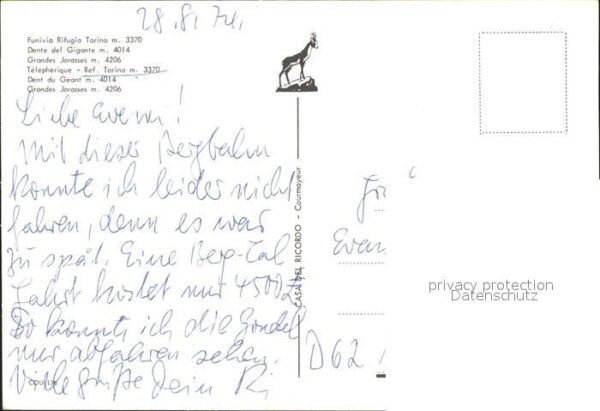 28.8.74.
Funivia Rifugio Torino m. 3370
Dente del Gigante m. 4014
Grandes Jorasses m. 4206
Télephérique - Ref. Torino m. 3370
Dent du Geant m. 4014
Grandes Jorasses m. 4206
Liebe
Mit dieser Bergbahn
konnte ich leider nicht
fahren, denn es war
zu spät. Eine Berg-Tal
Fahrt kostet nur 4500 £
So konnte ich die Gondel
nur abfahren sehen.
Viele Grüße Dein Ri
CASA DEL RICORDO - Courmayeur
Evan
D 62
privacy protection
Datenschutz